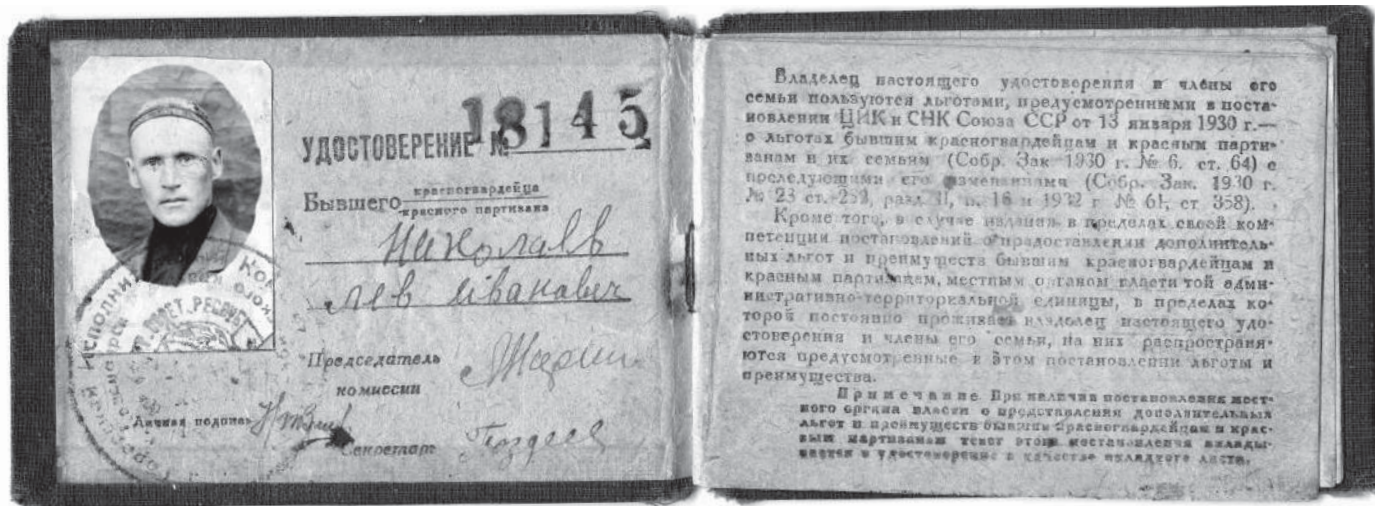 18145
УДОСТОВЕРЕНИЕ №
Бывшего красногвардейца
красного партизана
Николаев
Лев Иванович
Председатель
комиссии
Личная подпись
Секретарь Поздеев
СОВЕТ. РЕСПУБ
Владелец настоящего удостоверения и члены его
семьи пользуются льготами, предусмотренными в поста-
новлении ЦИК и СНК Союза ССР от 13 января 1930 г.—
о льготах бывшим красногвардейцам и красным парти-
занам и их семьям (Собр. Зак 1930 г. № 6. ст. 64) с
последующими его изменениями (Собр. Зак. 1930 г.
№ 23 ст. 253, разд. II, п. 16 и 1932 г № 61, ст. 358).
Кроме того, в случае издания в пределах своей ком-
петенции постановлений о предоставлении дополнитель-
ных льгот и преимуществ бывшим красногвардейцам и
красным партизанам, местным органом власти той адми-
нистративно-территориальной единицы, в пределах ко-
торой постоянно проживает владелец настоящего удо-
стоверения и члены его семьи, на них распространя-
ются предусмотренные в этом постановлении льготы и
преимущества.
Примечание При наличии постановления мест-
ного органа власти о представлении дополнительных
льгот и преимуществ бывшим красногвардейцам и крас-
ным партизанам текст этого постановления вклады-
вается в удостоверение в качестве вкладного листа.